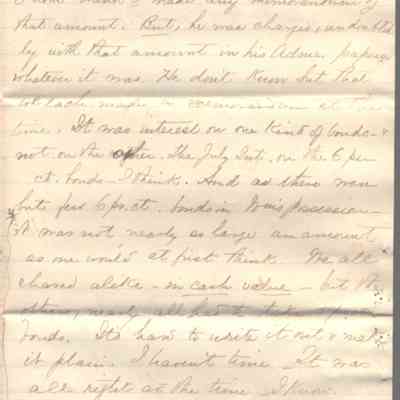 that amount. But, he was charged, undoubted
ly with that amount in his Advmt. papers
whatever it was. He don't know but that
made a memorandum at the
time. It was interest on one kind of bonds &
not on the other. The July Int. on the 6 per
ct. bonds I think. And as there were
but few 6 pr. ct. bonds in possession
it was not nearly as large an amount
as one would at first think. We all
shared alike in cash value - but the
others, nearly all had to take
bonds. Its hard to write it out & make
it plain. I haven't time. It was
all right at the time I know.